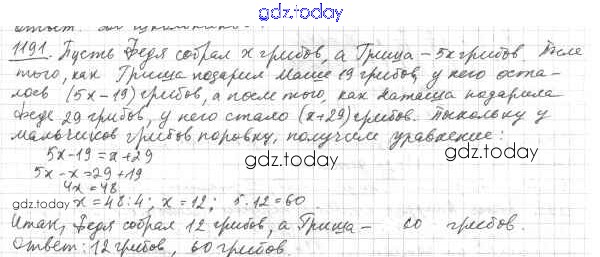 gdz.today
1191. Пусть Федя собрал x грибов, а Гриша – 5x грибов. После
того, как Гриша подарил Маше 19 грибов, у него оста-
лось (5x – 19) грибов, а после того, как Наташа подарила
Феде 29 грибов, у него стало (x+29) грибов. Поскольку у
мальчиков грибов поровну, получим уравнение:
gdz.today
5x - 19 = x + 29
gdz.today
5x - x = 29 + 19
4x = 48
gdz.today x = 48 : 4; x = 12; 5 · 12 = 60
gdz.today
Итак, Федя собрал 12 грибов, а Гриша – 60 грибов.
Ответ: 12 грибов, 60 грибов.
gdz.today